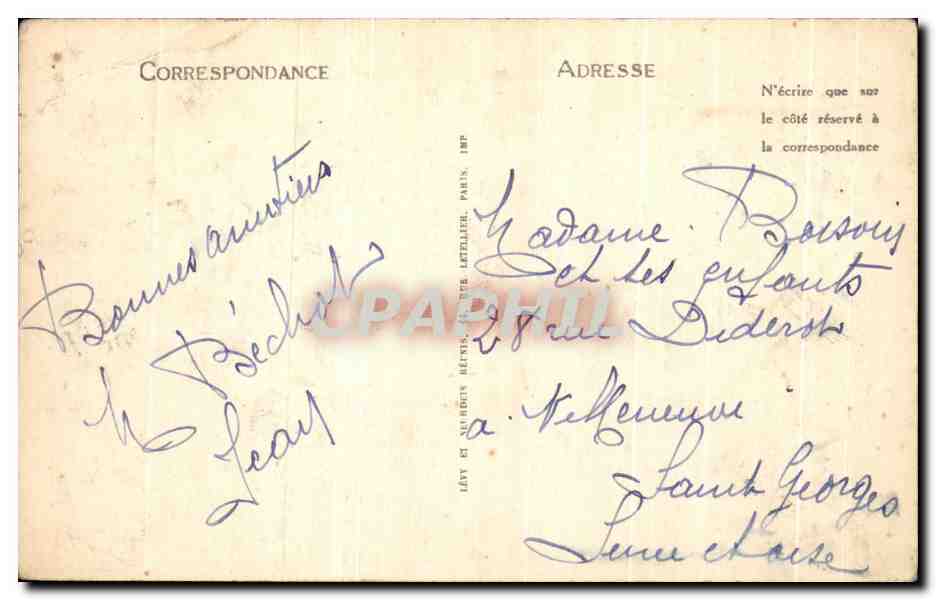 CORRESPONDANCE
Bonnes amitiés
M Béchot
Jean
LÉVY ET NEURDEIN RÉUNIS, 44, RUE LETELLIER, PARIS, IMP
ADRESSE
N'écrire que sur
le côté réservé à
la correspondance
Madame
et ses enfants
28 rue Diderot
a Villeneuve
Saint Georges
Seine et oise
CPAPHIL